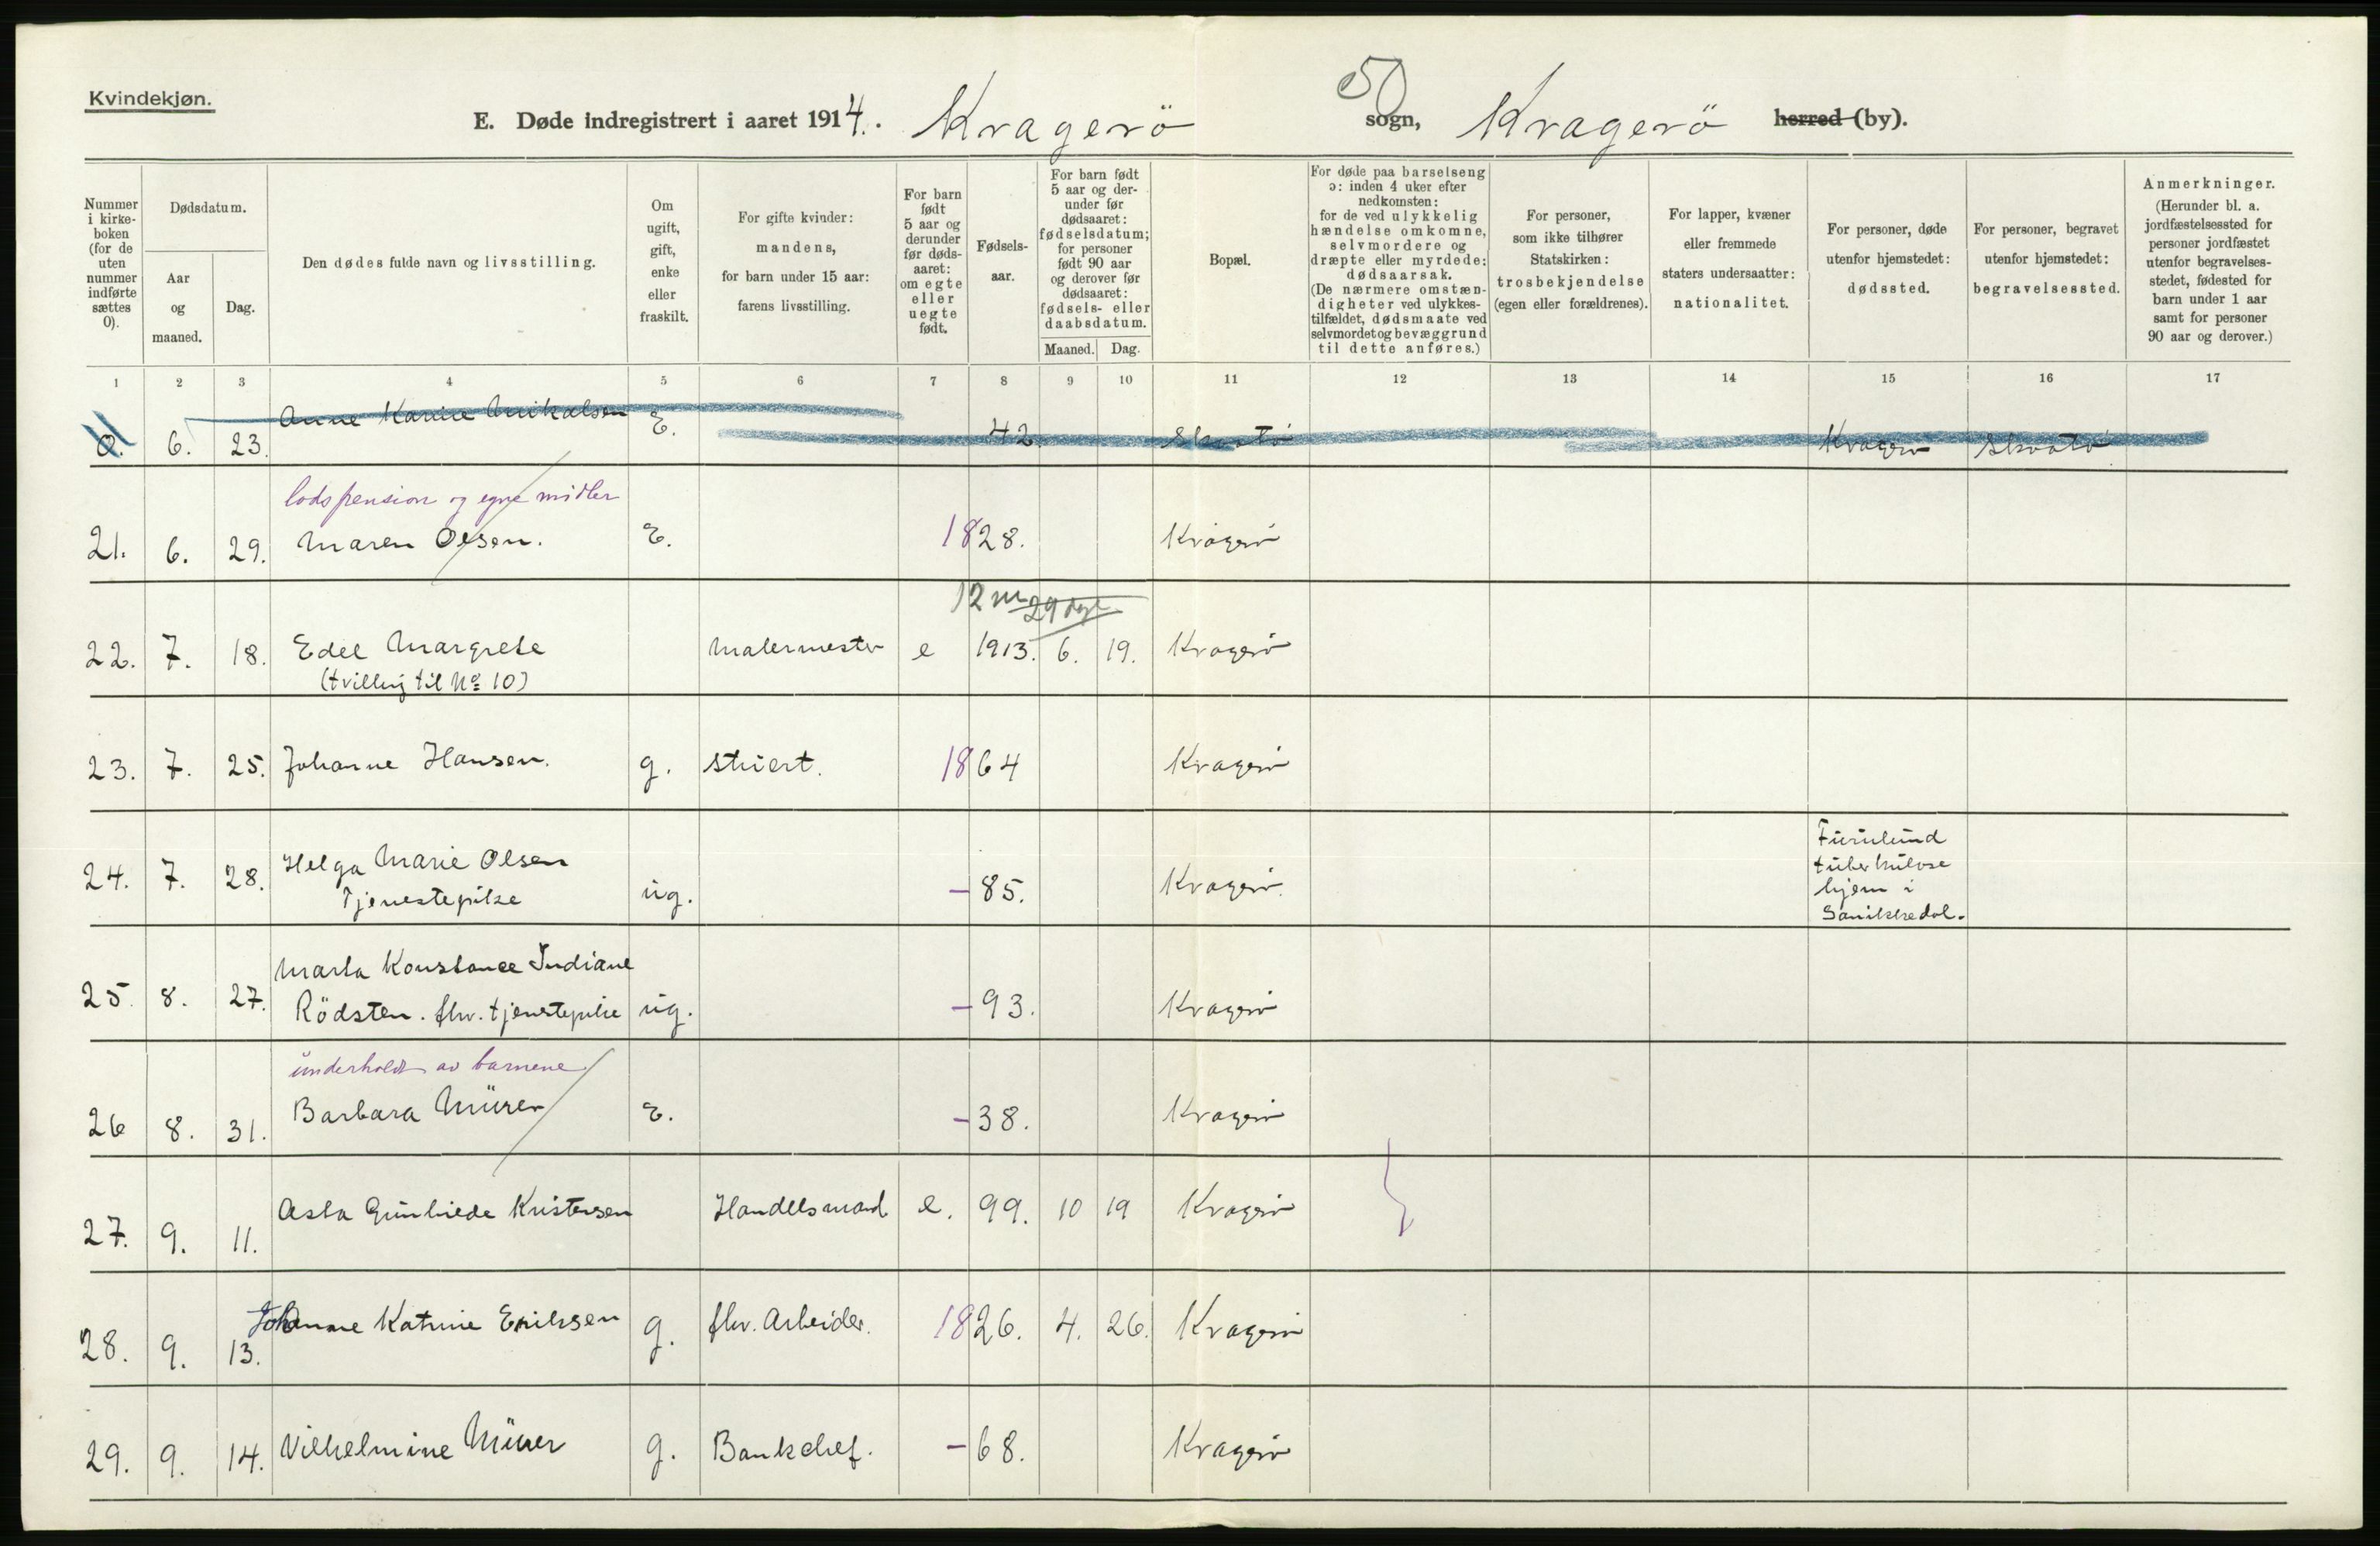 Kvindekjøn.
50
E. Døde indregistrert i aaret 1914. Kragerö sogn, Kragerö herred (by).
Nummer i kirke-boken (for de uten nummer indførte sættes 0).
Dødsdatum.
Aar og maaned.
Dag.
Den dødes fulde navn og livsstilling.
Om ugift, gift, enke eller fraskilt.
For gifte kvinder: mandens, for barn under 15 aar: farens livsstilling.
For barn født 5 aar og derunder før døds-aaret: om egte eller uegte født.
Fødsels-aar.
For barn født 5 aar og der-under før dødsaaret: fødselsdatum; for personer født 90 aar og derover før dødsaaret: fødsels- eller daabsdatum.
Maaned. Dag.
Bopæl.
For døde paa barselseng ɔ: inden 4 uker efter nedkomsten: for de ved ulykkelig hændelse omkomne, selvmordere og dræpte eller myrdede: dødsaarsak. (De nærmere omstæn-digheter ved ulykkes-tilfældet, dødsmaate ved selvmordet og bevæggrund til dette anføres.)
For personer, som ikke tilhører Statskirken: trosbekjendelse (egen eller forældrenes).
For lapper, kvæner eller fremmede staters undersaatter: nationalitet.
For personer, døde utenfor hjemstedet: dødssted.
For personer, begravet utenfor hjemstedet: begravelsessted.
Anmerkninger. (Herunder bl. a. jordfæstelsessted for personer jordfæstet utenfor begravelses-stedet, fødested for barn under 1 aar samt for personer 90 aar og derover.)
1 2 3 4 5 6 7 8 9 10 11 12 13 14 15 16 17
0. 6. 23. Anne Karine Mikalsen E. 42 Skaatö Kragerö Skaatö
lodspension og egne midler
21. 6. 29. Maren Olsen. E. 1828. Kragerö
12 m 29 dage
22. 7. 18. Edel Margrete malermester e 1913. 6. 19. Kragerö
(tvilling til No 10)
23. 7. 25. Johanne Hansen. g. stuert. 1864 Kragerö
24. 7. 28. Helga Marie Olsen Tjenestepike ug. - 85. Kragerö. Furulund tuberkulose hjem i Sanikkedal.
25. 8. 27. Marta Konstance Indiane
Rödsten. fhv. tjenestepike ug. - 93. Kragerö
underholdt av barnene
26 8. 31. Barbara Mürer E. - 38. Kragerö
27. 9. 11. Asta Gunhilde Kristensen Handelsmand e. 99. 10 19 Kragerö
28. 9. 13. Johanne Katrine Eriksen g. fhv. Arbeider. 1826. 4. 26. Kragerö
29. 9. 14. Vilhelmine Mürer g. Bankchef. - 68. Kragerö